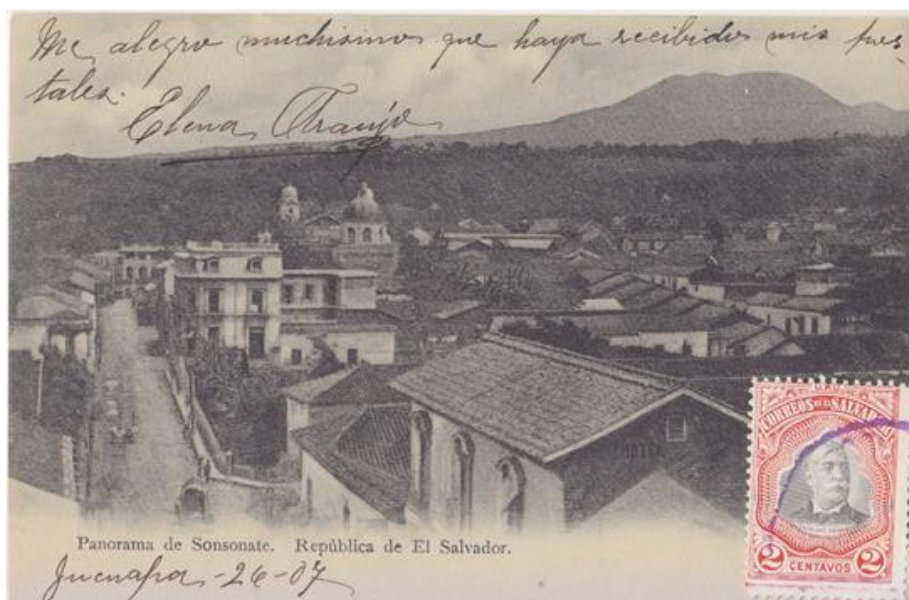 Me alegro muchisimo que haya recibido mis pos-
tales.
Elena Araujo
CORREOS DE EL SALVADOR
2 CENTAVOS 2
Panorama de Sonsonate. República de El Salvador.
-26-07